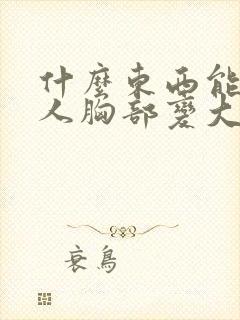 什麼東西能
人胸部變大
衰鳥